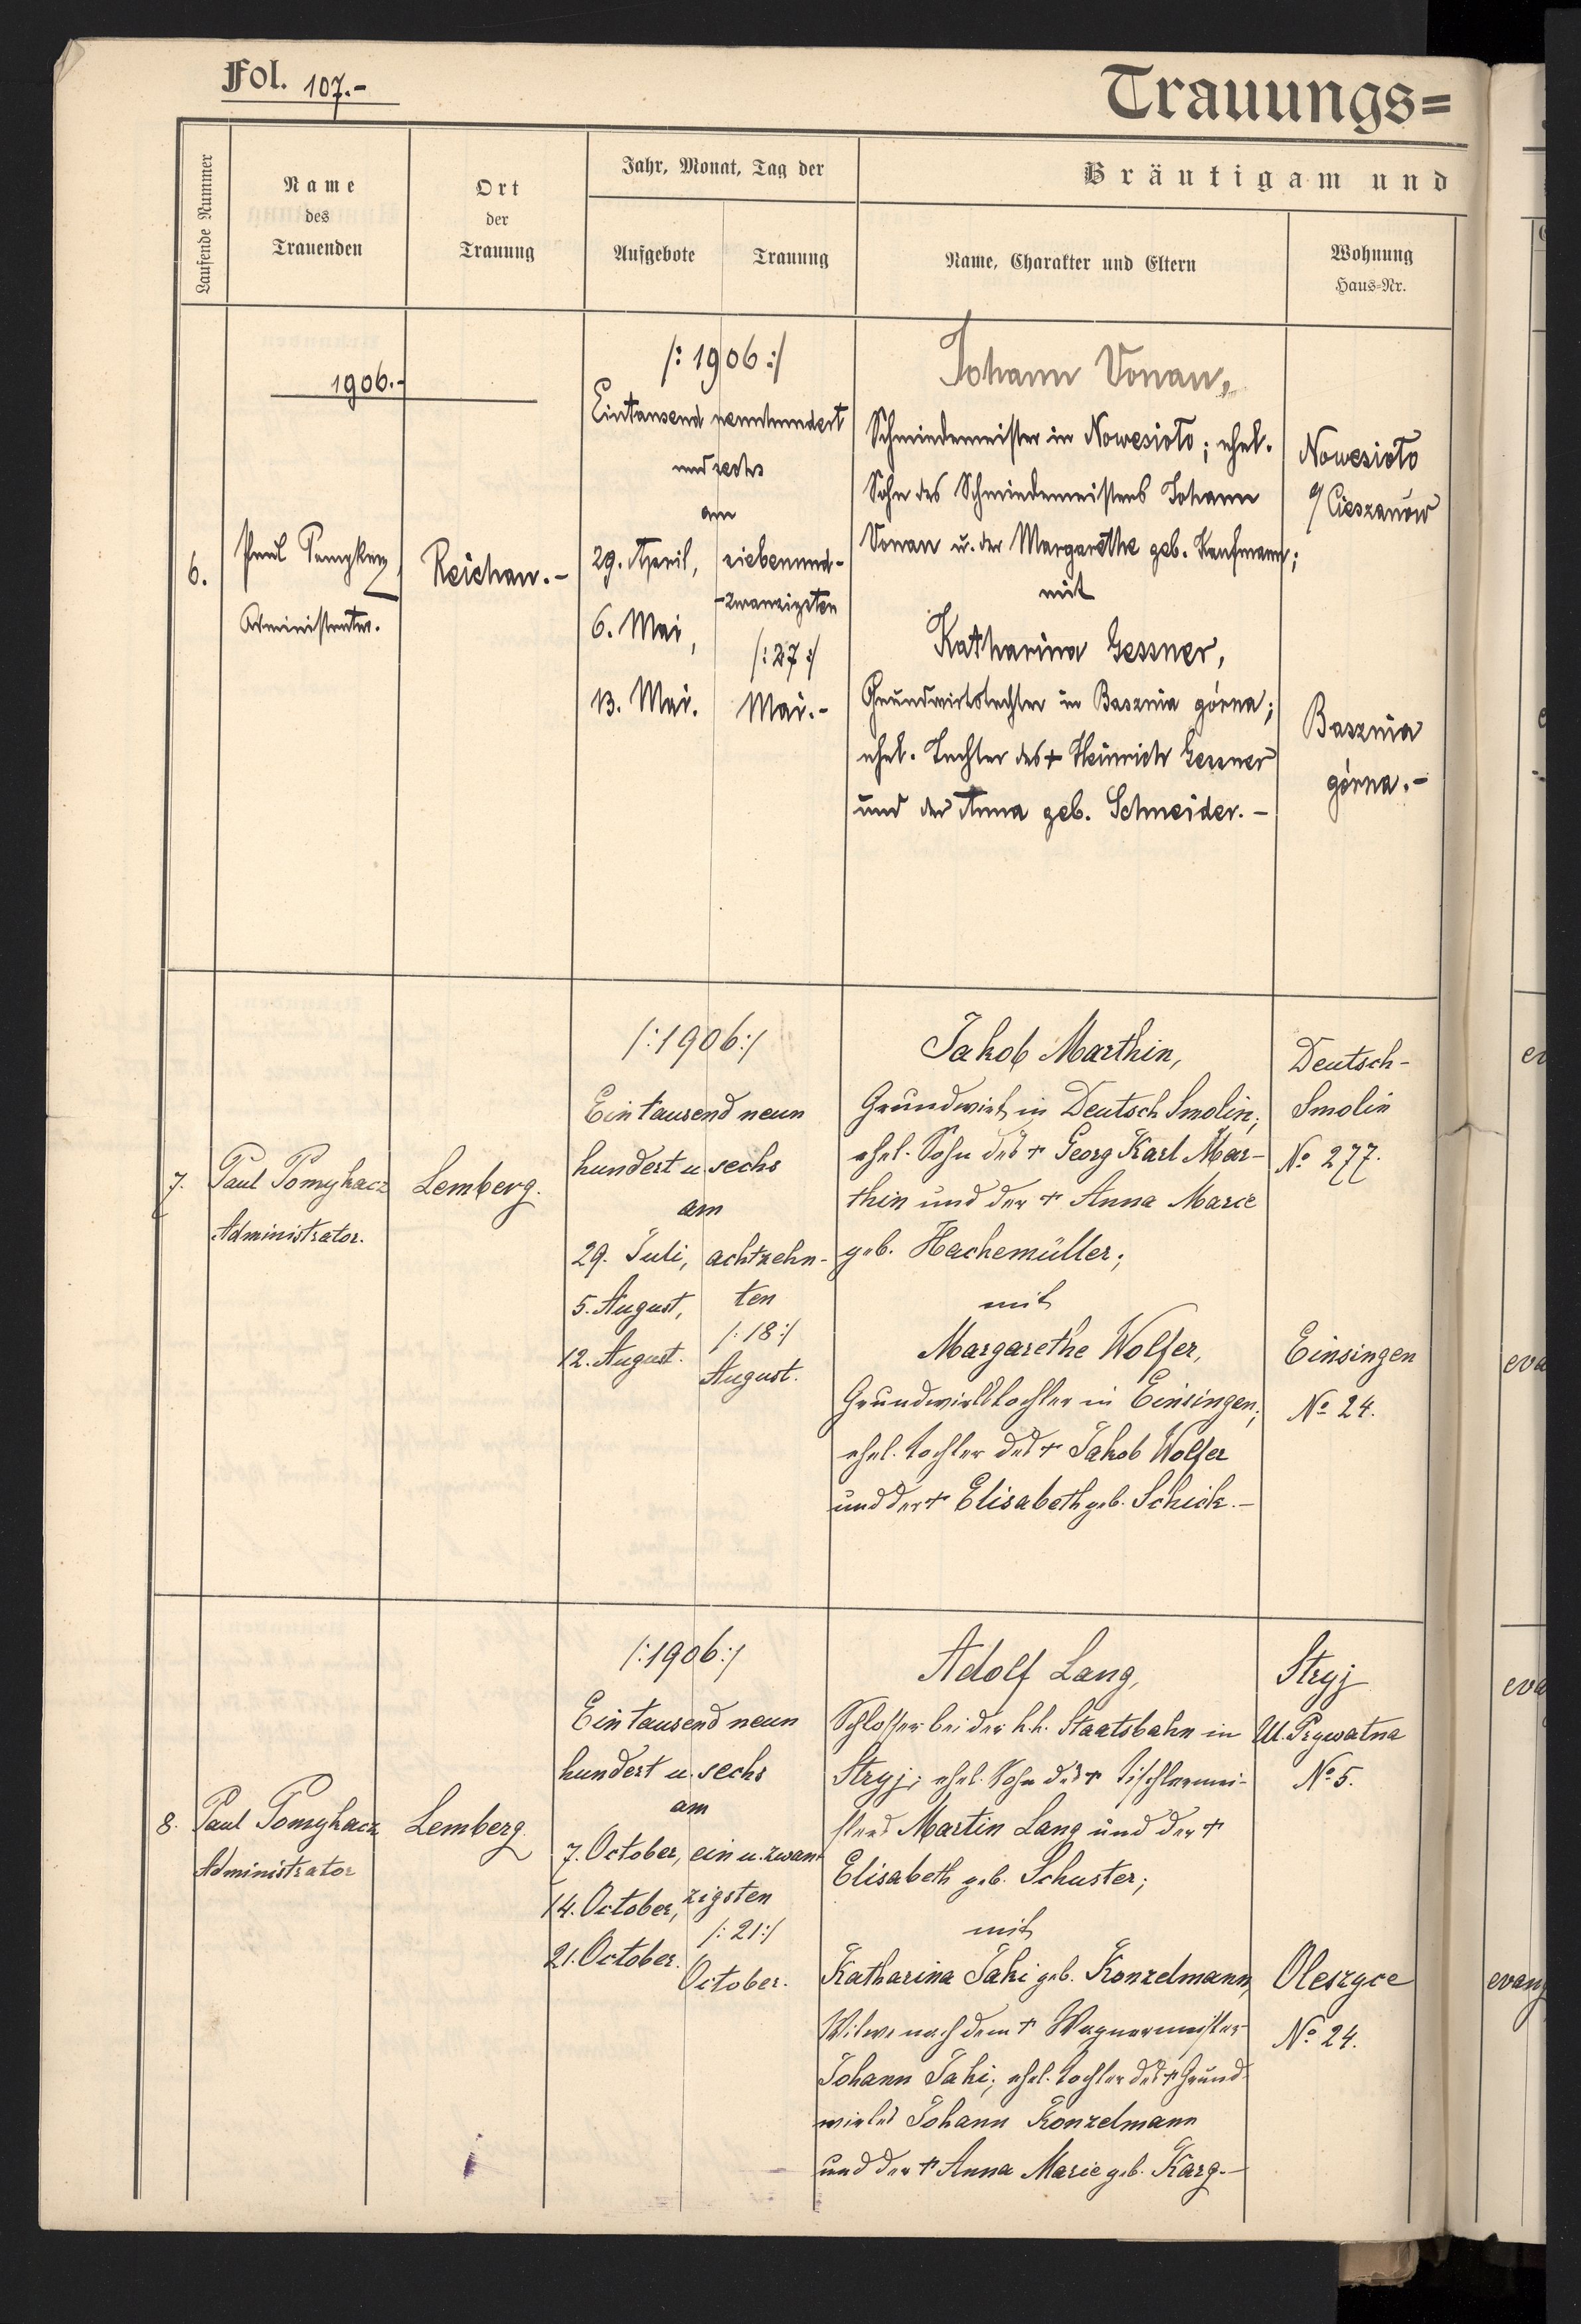 Fol. 107.-
Trauungs=
Laufende Nummer
Name
des
Trauenden
Ort
der
Trauung
Jahr, Monat, Tag der
Aufgebote
Trauung
Bräutigam und
Name, Charakter und Eltern
Wohnung
Haus-Nr.
1906.-
6.
Administrator.
Reichau.-
/: 1906 :/
Eintausend neunhundert
und sechs
am
29. April,
6. Mai,
13. Mai.
siebenund-
-zwanzigsten
/: 27 :/
Mai.-
Johann Vonau,
Schmiedemeister in Nowesioło; ehel.
Sohn des Schmiedemeisters Johann
Vonau u. der Margarethe geb. Kaufmann;
mit
Katharina Gessner,
Grundwirtstochter in Basznia górna;
ehel. Tochter des + Heinrich Gessner
und der Anna geb. Schneider.-
Nowesioło
a/ Cieszanów
Basznia
górna.-
7.
Paul Pomykacz
Administrator.
Lemberg.
/: 1906 :/
Eintausend neun
hundert u. sechs
am
29. Juli,
5. August,
12. August.
achtzehn-
ten
/: 18 :/
August.
Jakob Marthin,
Grundwirt in Deutsch Smolin;
ehel. Sohn des + Georg Karl Mar-
thin und der + Anna Marie
geb. Hachemüller;
mit
Margarethe Wolfer,
Grundwirtstochter in Einsingen;
ehel. Tochter des + Jakob Wolfer
und der + Elisabeth geb. Schick.-
Deutsch-
Smolin
No 277.
Einsingen
No 24.
8.
Paul Pomykacz
Administrator
Lemberg.
/: 1906 :/
Eintausend neun
hundert u. sechs
am
7. October,
14. October,
21. October.
ein u. zwan-
zigsten
/: 21 :/
October.
Adolf Lang,
Schlosser bei der k.k. Staatsbahn in
Stryj; ehel. Sohn des + Tischlermei-
sters Martin Lang und der +
Elisabeth geb. Schuster;
mit
Katharina Jaki geb. Konzelmann,
Witwe nach dem + Wagnermeister
Johann Jaki; ehel. Tochter des + Grund-
wirtes Johann Konzelmann
und der + Anna Marie geb. Karg.-
Stryj
Ul. Prywatna
No 5.
Oleszyce
No 24.